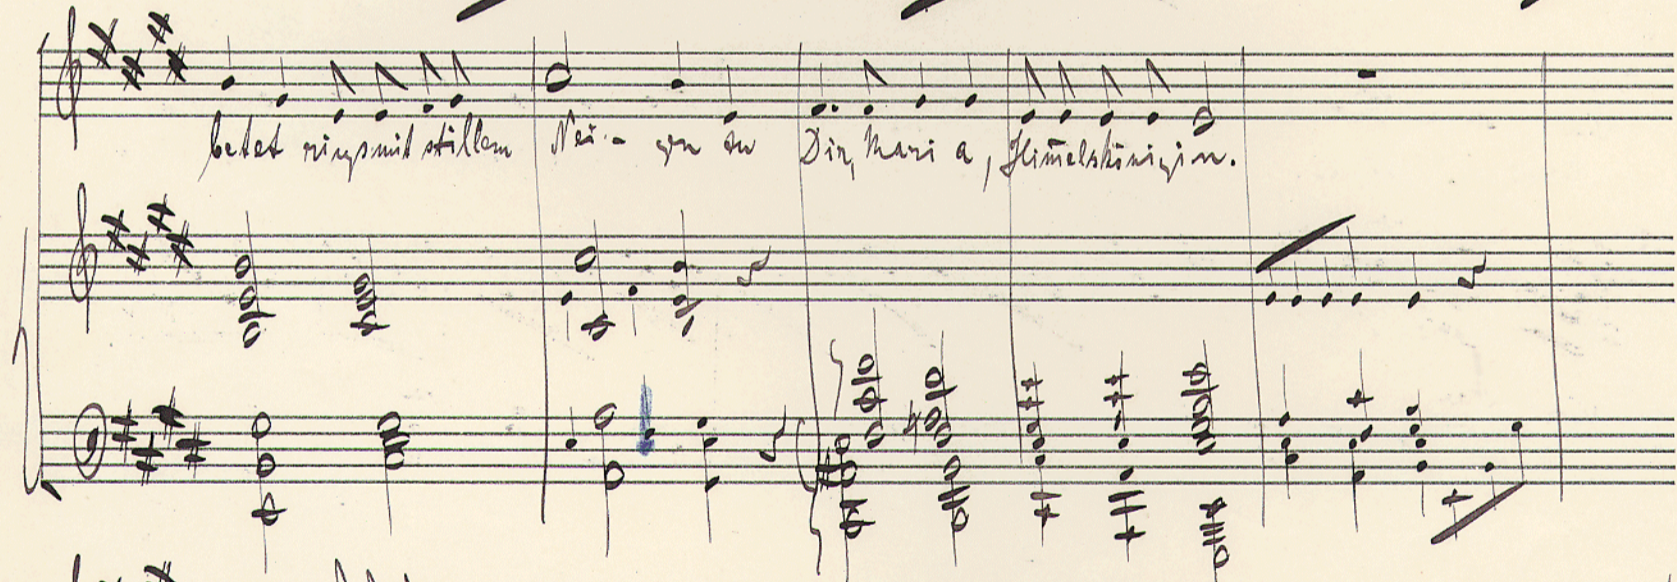 betet rings mit stillem Nei-gen zu Dir, Mari a, Him̄elskönigin.